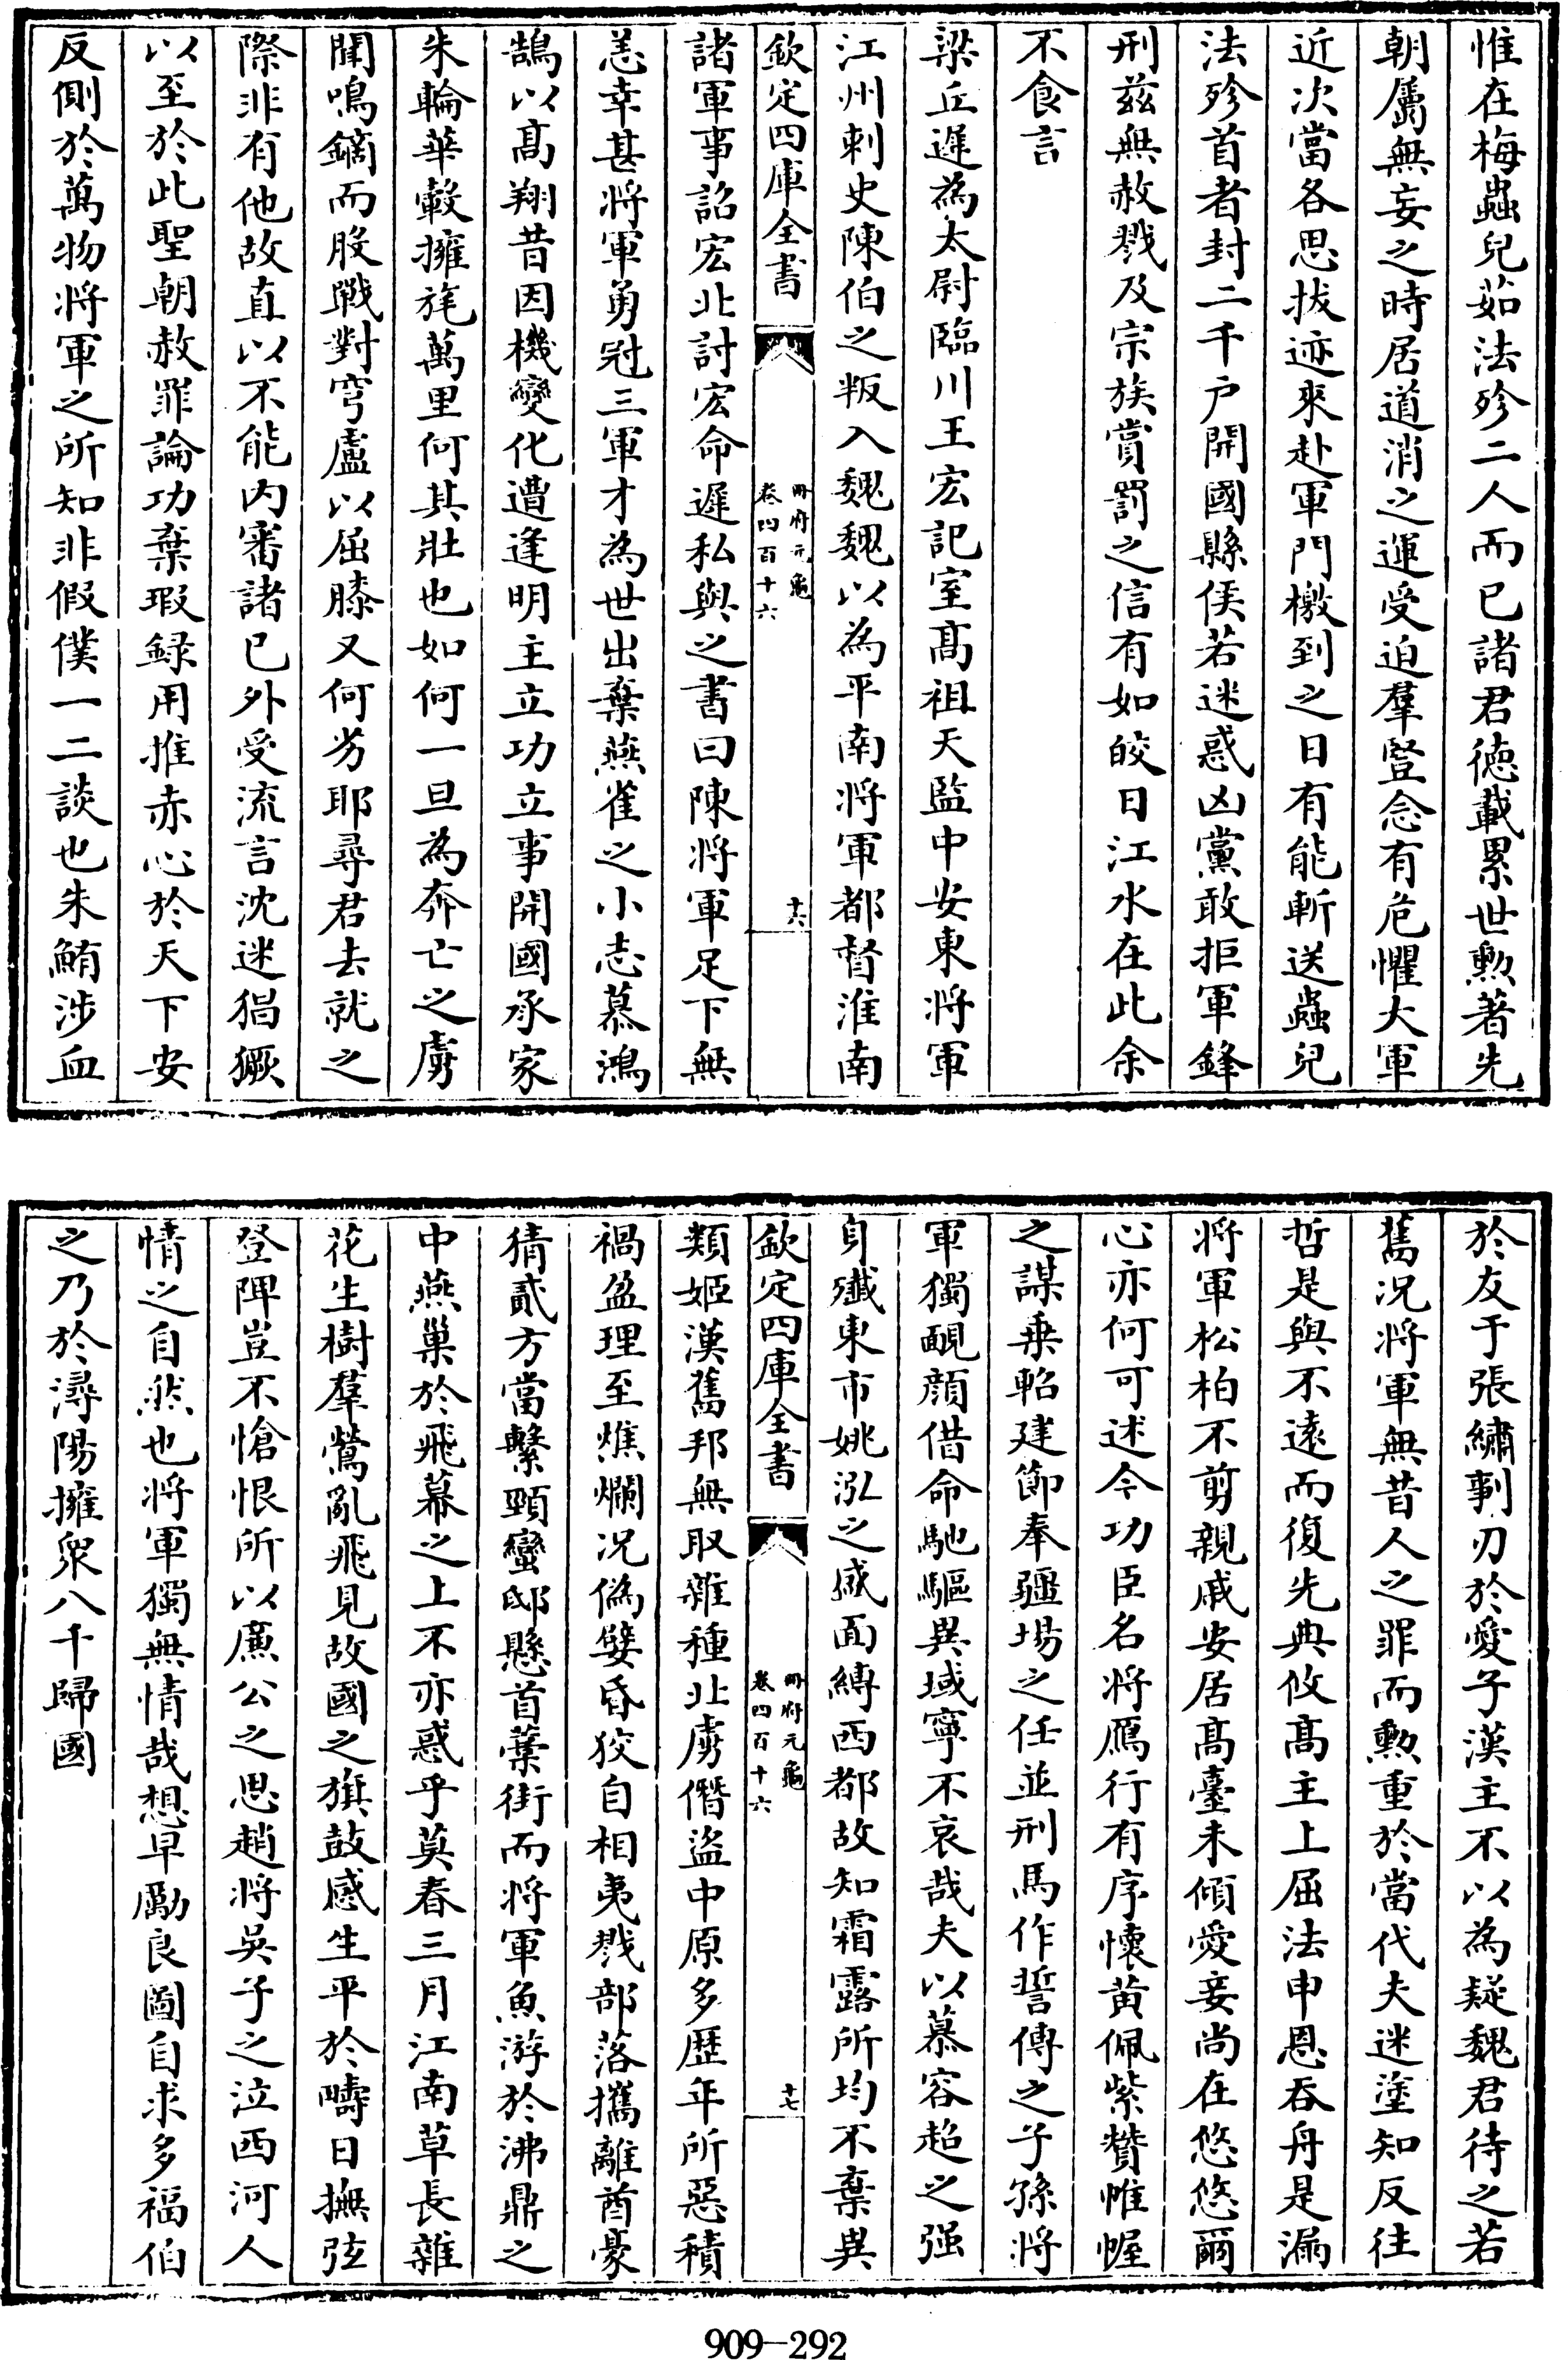 惟在梅蟲兒茹法珍二人而已諸君徳載累世勲著先
朝屬無妄之時居道消之運受迫羣豎念有危懼大軍
近次當各思拔迹來赴軍門檄到之日有能斬送蟲兒
法珍首者封二千户開國縣侯若迷惑凶黨敢拒軍鋒
刑兹無赦戮及宗族賞罰之信有如皎日江水在此余
不食言
梁丘遲為太尉臨川王宏記室髙祖天監中安東将軍
江州刺史陳伯之叛入魏魏以為平南将軍都督淮南
欽定四庫全書
冊府元龜
卷四百十六
十六
諸軍事詔宏北討宏命遲私與之書曰陳将軍足下無
恙幸甚将軍勇冠三軍才為世出棄燕雀之小志慕鴻
鵠以髙翔昔因機變化遭逢明主立功立事開國承家
朱輪華轂擁旄萬里何其壯也如何一旦為奔亡之虜
聞鳴鏑而股戰對穹廬以屈膝又何劣耶尋君去就之
際非有他故直以不能内審諸已外受流言沈迷猖獗
以至於此聖朝赦罪論功棄瑕録用推赤心於天下安
反側於萬物将軍之所知非假僕一二談也朱鮪涉血
於友于張繡剚刃於愛子漢主不以為疑魏君待之若
舊况将軍無昔人之罪而勲重於當代夫迷塗知反往
哲是與不逺而復先典攸髙主上屈法申恩吞舟是漏
将軍松柏不剪親戚安居髙臺未傾愛妾尚在悠悠爾
心亦何可述今功臣名将鴈行有序懷黄佩紫贊帷幄
之謀乗軺建節奉疆埸之任並刑馬作誓傳之子孫将
軍獨靦顔借命馳驅異域寧不哀哉夫以慕容超之强
身殱東市姚泓之盛面縛西都故知霜露所均不棄異
欽定四庫全書
冊府元龜
卷四百十六
十七
類姬漢舊邦無取雜種北虜僭盜中原多歴年所惡積
禍盈理至燋爛况偽孽昏狡自相夷戮部落攜離酋豪
猜貳方當繫頸蠻邸懸首藁街而将軍魚游於沸鼎之
中燕巢於飛幕之上不亦惑乎莫春三月江南草長雜
花生樹羣鶯亂飛見故國之旗鼓感生平於疇日撫弦
登陴豈不愴恨所以廉公之思趙将吳子之泣西河人
情之自然也将軍獨無情哉想早勵良圖自求多福伯
之乃於潯陽擁衆八千歸國
909-292